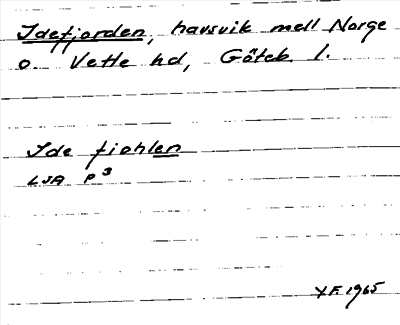 Idefjorden, havsvik mell Norge
o. Vette hd, Göteb. l.
Ide fiohlen
LSA P³
YF 1965